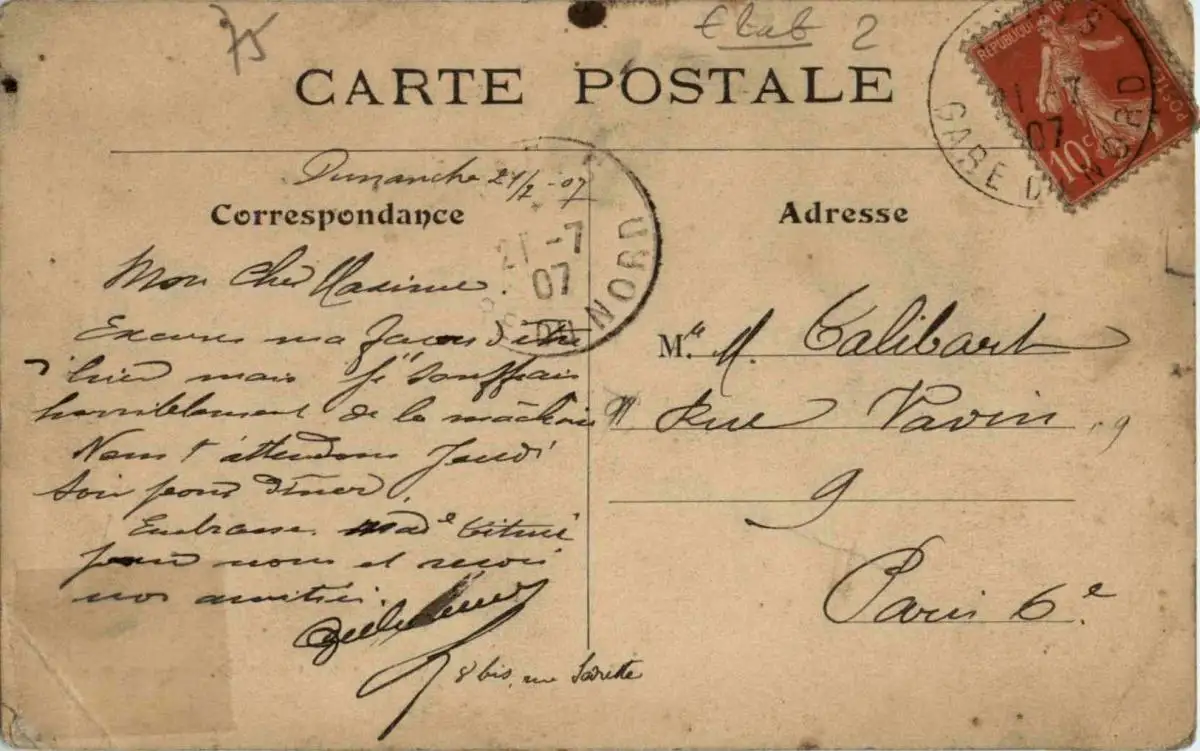 75
2
CARTE POSTALE
REPUBLIQUE
POST
10 c
21 - 7
07
GARE DU NORD
Dimanche 21/7 - 07
Correspondance
21 - 7
07
DU NORD
Adresse
Mon Cher Maxime.
Excuses ma façon d'être
hier mais je souffrais
horriblement de la mâchoire
Nous t'attendons Jeudi
soir pour dîner.
Embrasse Mad^e
pour nous et reçois
nos amitiés.
8 bis, rue Sarrette
M. M. Calibart
Rue Vavin, 9
9
Paris 6^e.